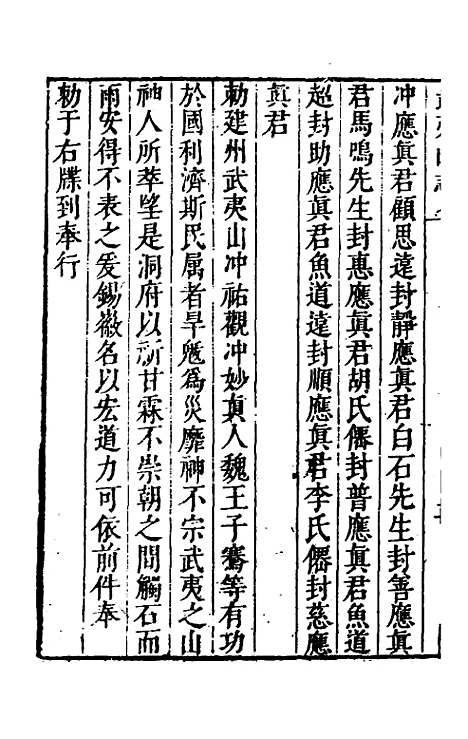 冲應眞君顧思遠封靜應眞君白石先生封善應眞
君馬鳴先生封惠應眞君胡氏僊封普應眞君魚道
超封助應眞君魚道遠封順應眞君李氏僊封慈應
眞君
勅建州武夷山冲祐觀冲妙眞人魏王子騫等有功
於國利濟斯民属者旱魃爲災靡神不宗武夷之山
神人所萃望是洞府以祈甘霖不崇朝之間觸石而
雨安得不表之爰錫徽名以宏道力可依前件奉
勅于右牒到奉行